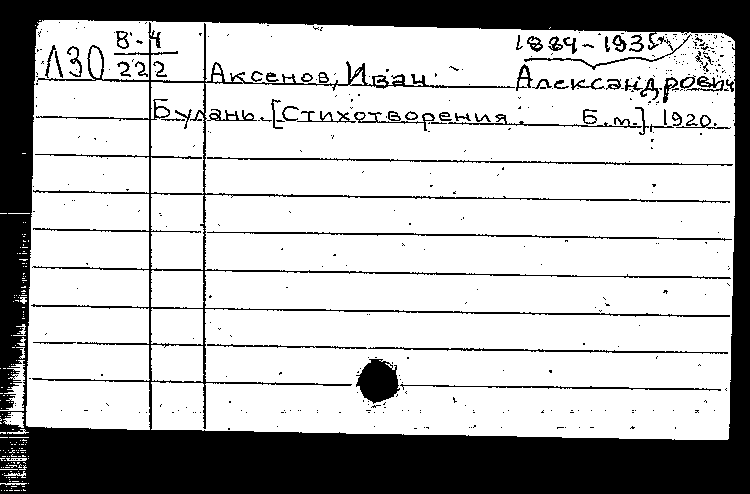 В-4
1884-1935
Л30 222 Аксенов, Иван Александрович
Булань. [Стихотворения. Б.м.], 1920.